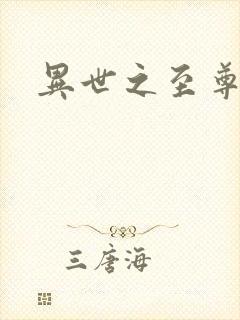 異世之至尊
三唐海